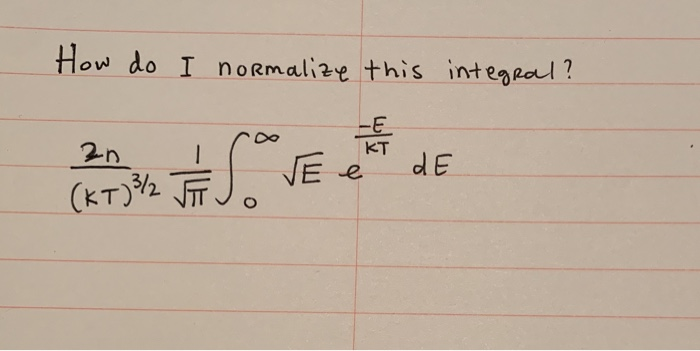 How do I normalize this integral?
2n/(KT)^3/2 1/√π ∫₀^∞ √E e^(-E/KT) dE